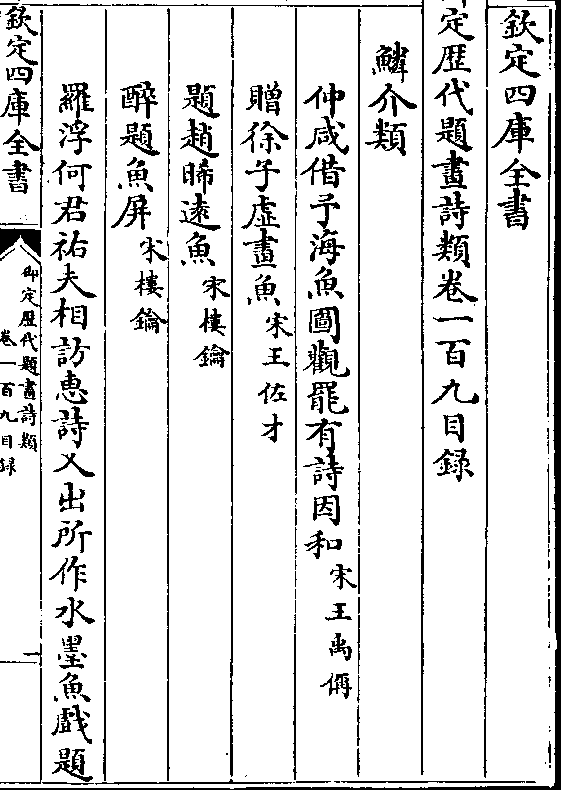 欽定四庫全書
定歴代題畫詩類卷一百九目録
鱗介類
仲咸借予海魚圖觀罷有詩因和宋王禹偁
贈徐子虛畫魚宋王佐才
題趙晞遠魚宋樓鑰
醉題魚屏宋樓鑰
羅浮何君祐夫相訪惠詩又出所作水墨魚戲題
欽定四庫全書
御定歴代題畫詩類
卷一百九目録
一